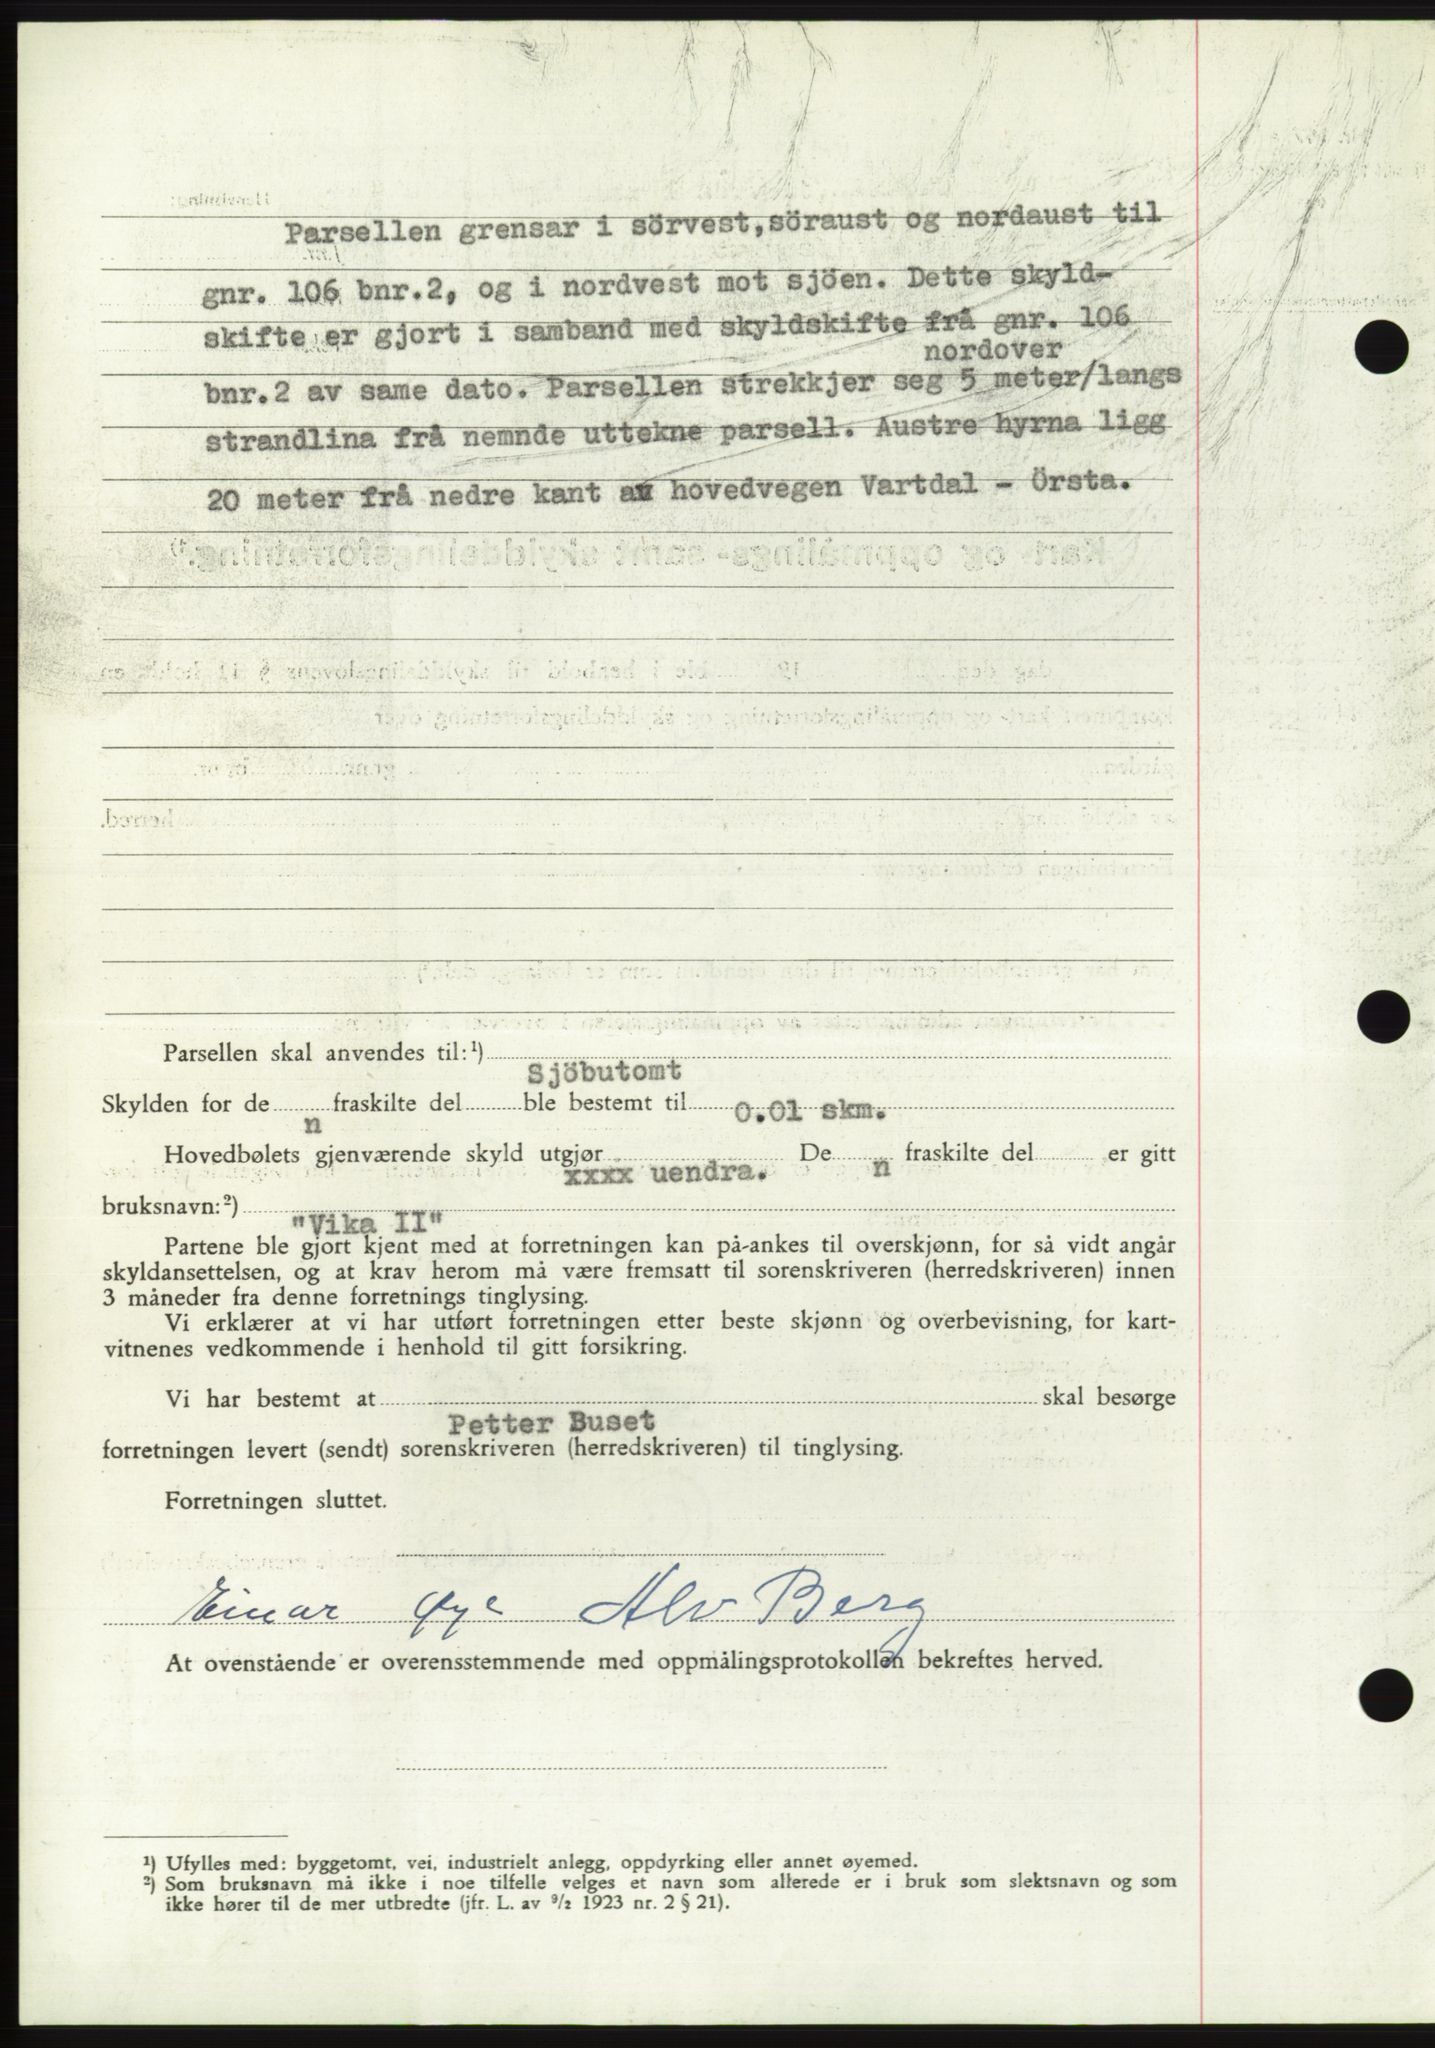 Parsellen grensar i sörvest,söraust og nordaust til
gnr. 106 bnr.2, og i nordvest mot sjöen. Dette skyld-
skifte er gjort i samband med skyldskifte frå gnr. 106
nordover
bnr.2 av same dato. Parsellen strekkjer seg 5 meter/langs
strandlina frå nemnde uttekne parsell. Austre hyrna ligg
20 meter frå nedre kant av hovedvegen Vartdal - Örsta.
Parsellen skal anvendes til:¹)
Sjöbutomt
Skylden for de n fraskilte del ble bestemt til 0.01 skm.
Hovedbølets gjenværende skyld utgjør xxxx uendra. De n fraskilte del er gitt
bruksnavn:²) "Vika II"
Partene ble gjort kjent med at forretningen kan på-ankes til overskjønn, for så vidt angår
skyldansettelsen, og at krav herom må være fremsatt til sorenskriveren (herredskriveren) innen
3 måneder fra denne forretnings tinglysing.
Vi erklærer at vi har utført forretningen etter beste skjønn og overbevisning, for kart-
vitnenes vedkommende i henhold til gitt forsikring.
Vi har bestemt at Petter Buset skal besørge
forretningen levert (sendt) sorenskriveren (herredskriveren) til tinglysing.
Forretningen sluttet.
Einar Øye Alv Berg
At ovenstående er overensstemmende med oppmålingsprotokollen bekreftes herved.
¹) Ufylles med: byggetomt, vei, industrielt anlegg, oppdyrking eller annet øyemed.
²) Som bruksnavn må ikke i noe tilfelle velges et navn som allerede er i bruk som slektsnavn og som
ikke hører til de mer utbredte (jfr. L. av ⁹/₂ 1923 nr. 2 § 21).